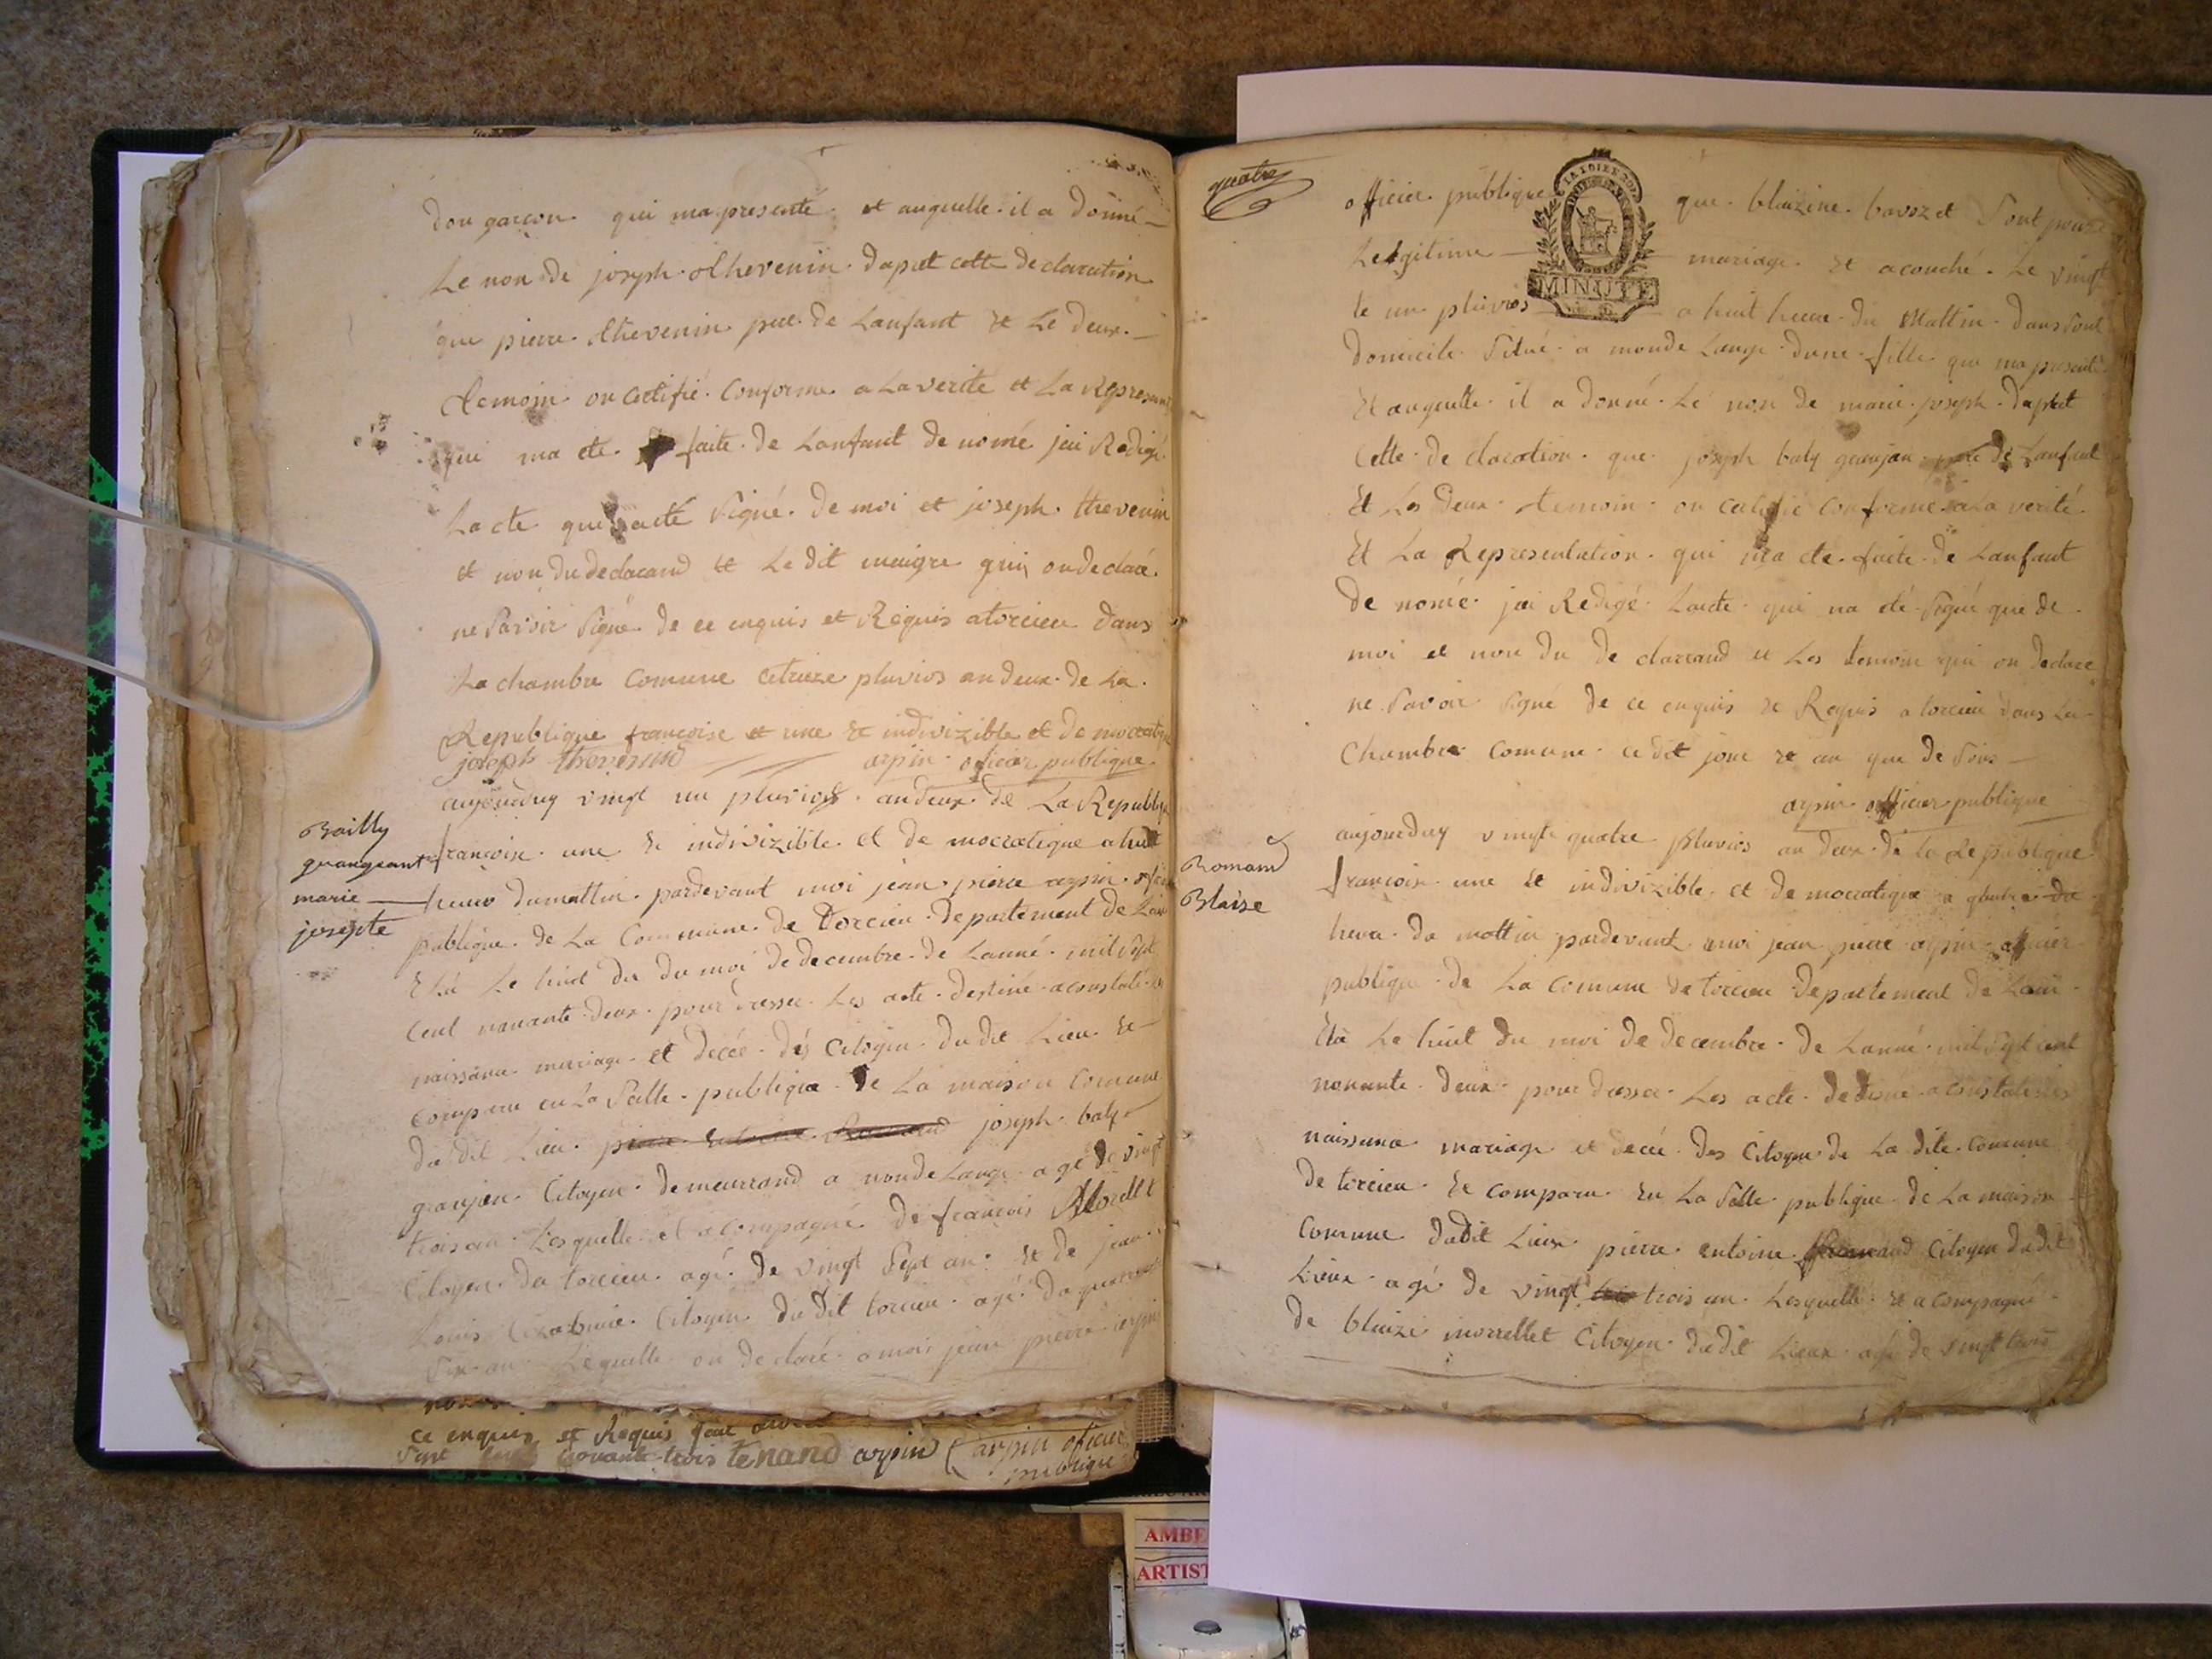 don garçon qui ma presenté et auquelle il a donné
Le non de joseph thevenin dapret cette declaration
que pierre thevenin pere de Lanfant et Le deux
temoin on certifié conforme a La verité et La Represen
qui ma ete faite de Lanfant de nomé jai Redigé
Lacte que acté signé de moi et joseph thevenin
et non du declarand et Le dit maigre qui on declaré
ne savoir signé de ce enquis et Requis a torcieu dans
La chambre comune ce treize pluvios an deux de La
Republique françoise et une et indivizible et de mocratique
joseph thevenin arpin oficier publique
aujourduy vingt un pluvios an deux de La Republique
Bailly
grangeant
marie
josepte
françoise une et indivizible et de mocratique a huit
heure du mattin pardevant moi jean pierre arpin oficier
publique de La Commune de torcieu departement de Lain
Elu Le huit du du moi de decembre de Lanné mil sept
cent nonante deux pour dresser Les acte destiné a constaté
naissance mariage et decée des Citoyen du dit Lieu et
comparu en La salle publique de La maison comune
du dit Lieu joseph baly
granjan Citoyen demeurrand a monde Lange agé de vingt
trois an Lesquelle et acompagné de françois Morellet
Citoyen du torcieu agé de vingt sept an et de jean
Louis Citoyen du dit torcieu agé de quarante
six an Lequelle on declaré a moi jean pierre arpin
ce enquis et Requis
sept cent nonante trois tenand arpin arpin oficier
publique
quatre
officier publique que blaizine bavozet sont pouze
Legitime mariage et acouché Le vingt
te un pluvios a huit heure du Mattin dans sont
MINUTE
domicile situé a monde Lange dune fille qui ma presenté
Et auquelle il a donné Le non de marie joseph dapret
Cette de claration que joseph baly granjan pere de Lanfant
Et Les deux temoin on certifié conforme a La verité
Et La Representation qui ma ete faite de Lanfant
de nomé jai Redigé Lacte qui na eté signé que de
moi et non du de clarrand et Les temoin qui on declare
ne savoir signé de ce enquis et Requis a torcieu dans La
Chambre Comune ce dit jour et an que de sus
arpin officier publique
Romand
Blaise
aujourduy vingt quatre pluvios an deux de la Republique
françoise une et indivizible et de mocratique a quatre
heure du mattin pardevant moi jean pierre arpin officier
publique de La Comune de torcieu departement de Lain
Elu Le huit du moi de decembre de Lanné mil sept cent
nonante deux pour dresser Les acte destiné a constaté
naissance mariage et decée des Citoyen de La dite Comune
de torcieu et comparu en La salle publique de La maison
Comune dudit Lieux pierre entoine Romand Citoyen dudit
Lieux agé de vingt trois an Lesquelle et acompagné
de blaize morrellet Citoyen dudit Lieux agé de vingt
AMBE
ARTIST